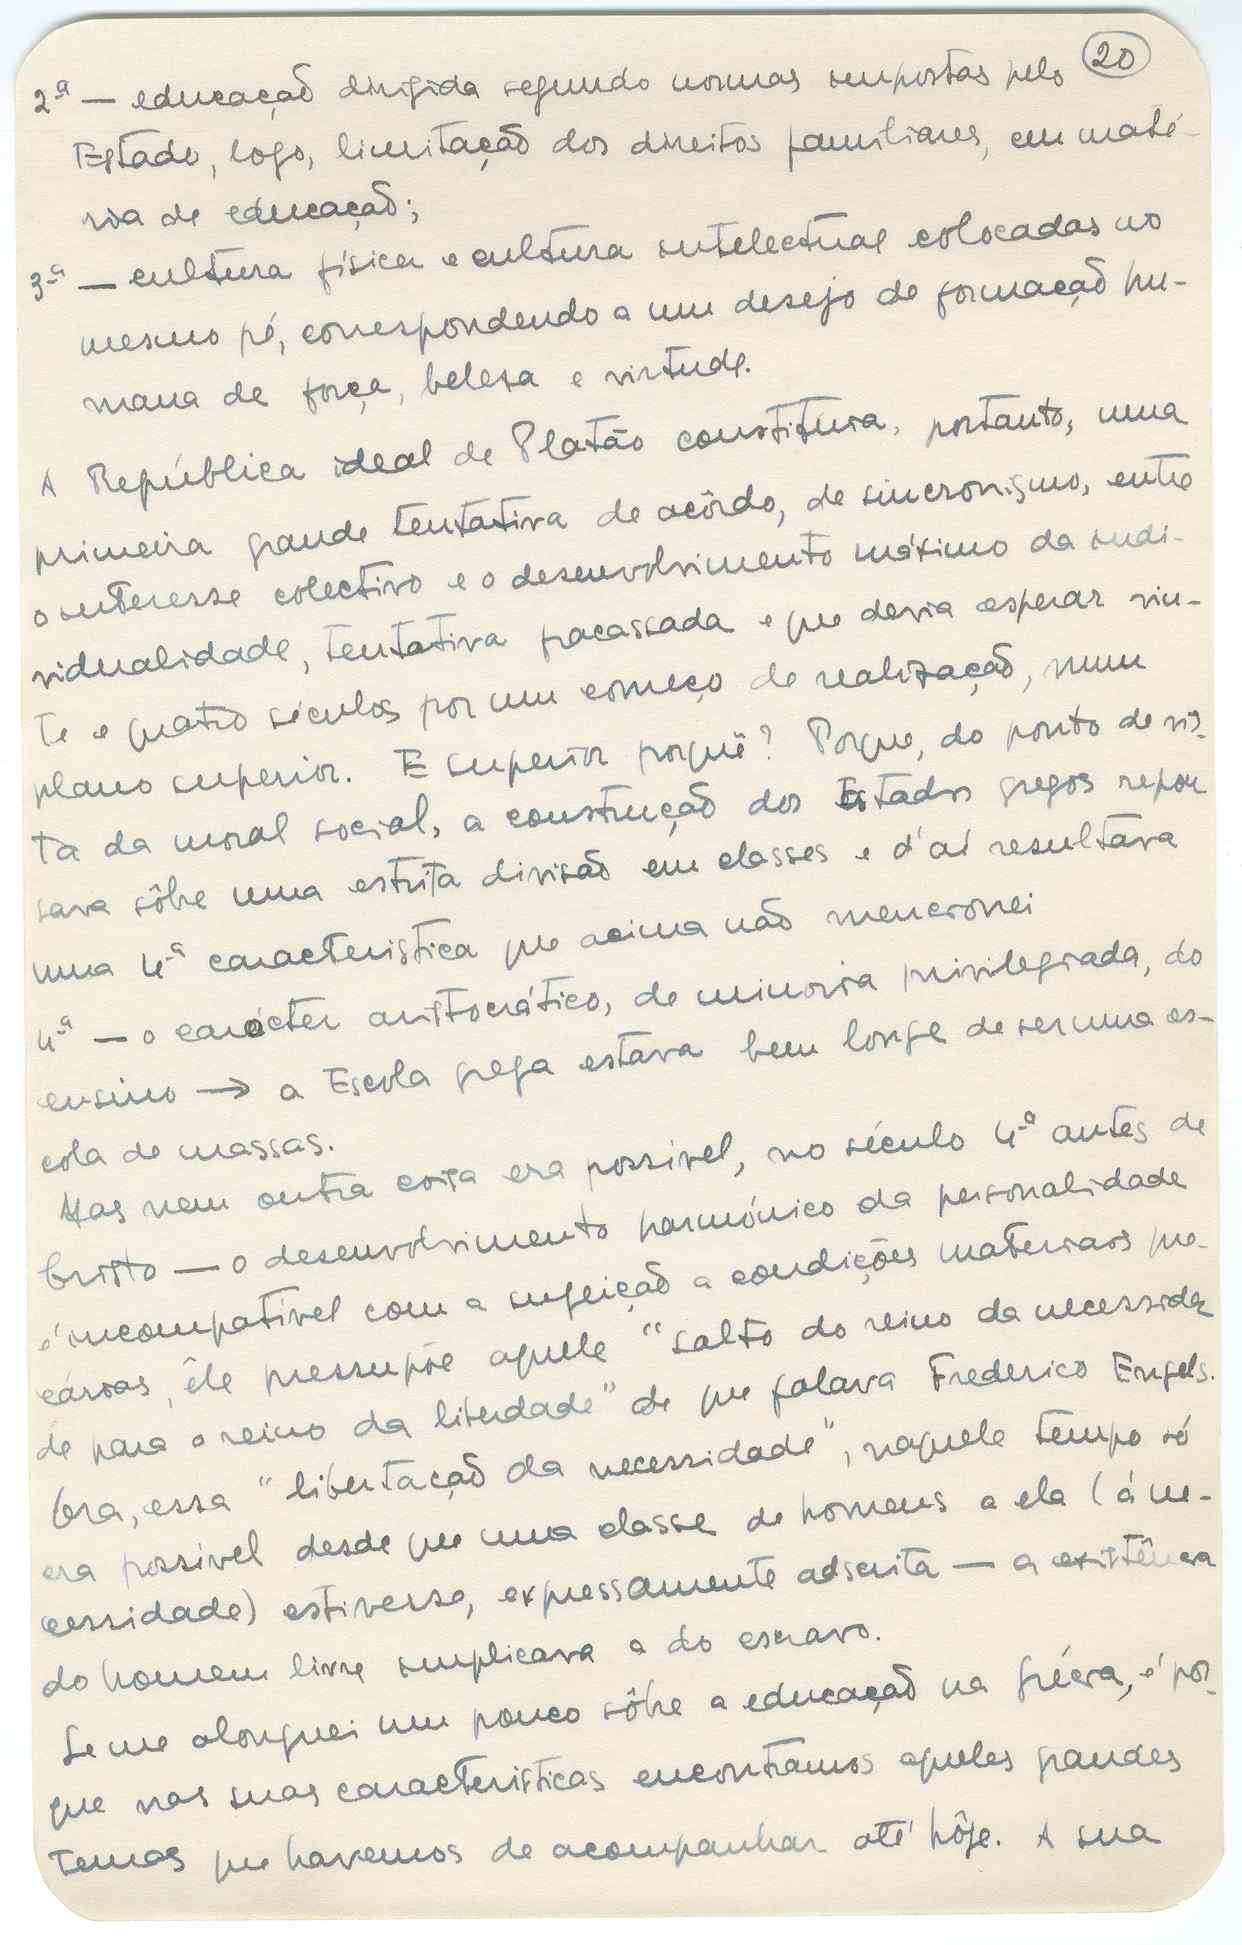 20
2ª — educação dirigida segundo normas impostas pelo
Estado, logo, limitação dos direitos familiares, em maté-
ria de educação;
3ª — cultura física e cultura intelectual colocadas no
mesmo pé, correspondendo a um desejo de formação hu-
mana de força, beleza e virtude.
A República ideal de Platão constituia, portanto, uma
primeira grande tentativa de acôrdo, de sincronismo, entre
o interesse colectivo e o desenvolvimento máximo da indi-
vidualidade, tentativa fracassada e que devia esperar vin-
te e quatro séculos por um começo de realização, num
plano superior. E superior porquê? Porque, do ponto de vis-
ta da moral social, a construção dos Estados gregos repou
sava sôbre uma estrita divisão em classes e d'aí resultava
uma 4ª característica que acima não mencionei
4ª — o carácter aristocrático, de minoria privilegiada, do
ensino → a Escola grega estava bem longe de ser uma es-
cola de massas.
Mas nem outra coisa era possivel, no século 4º antes de
Cristo — o desenvolvimento harmónico da personalidade
é incompatível com a sugeição a condições materiais pre-
cárias, êle pressupõe aquele "salto do reino da necessida
de para o reino da liberdade" de que falava Frederico Engels.
Ora, essa "libertação da necessidade", naquele tempo só
era possível desde que uma classe de homens a ela (á ne-
cessidade) estivesse, expressamente adscrita — a existência
do homem livre implicava a do escravo.
Se me alonguei um pouco sôbre a educação na Grécia, é por-
que nas suas características encontramos aqueles grandes
temas que havemos de acompanhar até hôje. A sua